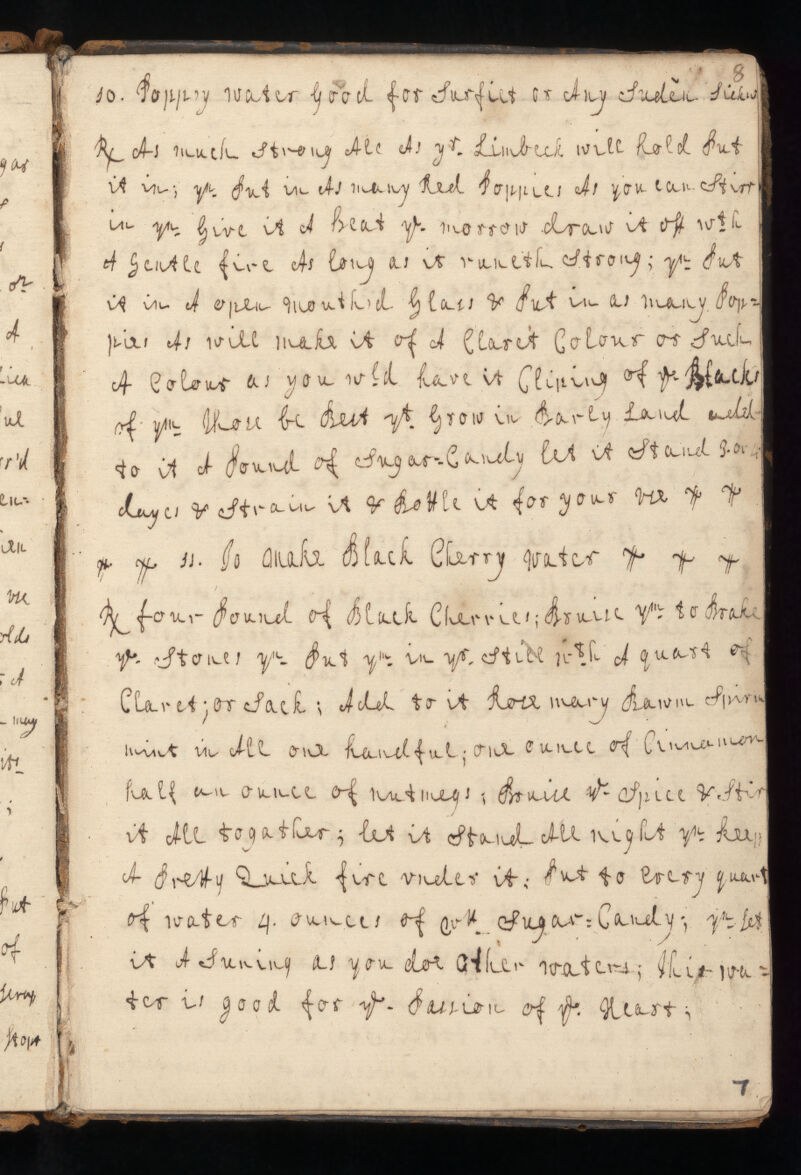 8
10. Poppy water Good for Surfiet or Any Suden Sickn
Rx As much Strong Ale As yr. Limbeck will hold Put
it in; yn. Put in As many Red Poppies As you can Stirr
in yn. Give it A heat ye. morrow draw it off wth
A Gentle fire As long as it runeth Strong; yn Put
it in A open mouth'd Glass & Put in as many Pop=
pies As will make it of A Claret Colour or Such
A Colour as you wld have it Cliping of ye Blacks
of ym. Those be Best yt. Grow in Barly Land add
to it A Pound of Sugar=Candy let it Stand 3. or 4
dayes & Strain it & Bottle it for your vse
11. To make Black Cherry water
Rx four Pound of Black Cherries; Bruise ym. to Brake
ye. Stones yn. Put ym. in yr. Still wth A quart of
Claret; or Sack; Add to it Rose mary Bawm Spirm
mint in All one handful; one ounce of Cinnamon
half an ounce of nutmegs; Bruise ye. Spice & Stir
it All togather; let it Stand All night yn. keep
A Pretty Quick fire vnder it; Put to Every quart
of water 4. ounces of wt. Sugar=Candy; yn Set
it A Suning as you doe other waters; this wa=
ter is good for ye. Passion of ye. Heart;
7
gar
or
A
ful
rs'd
en=
vse
olds
; A
may
;
Put
of
Stopt